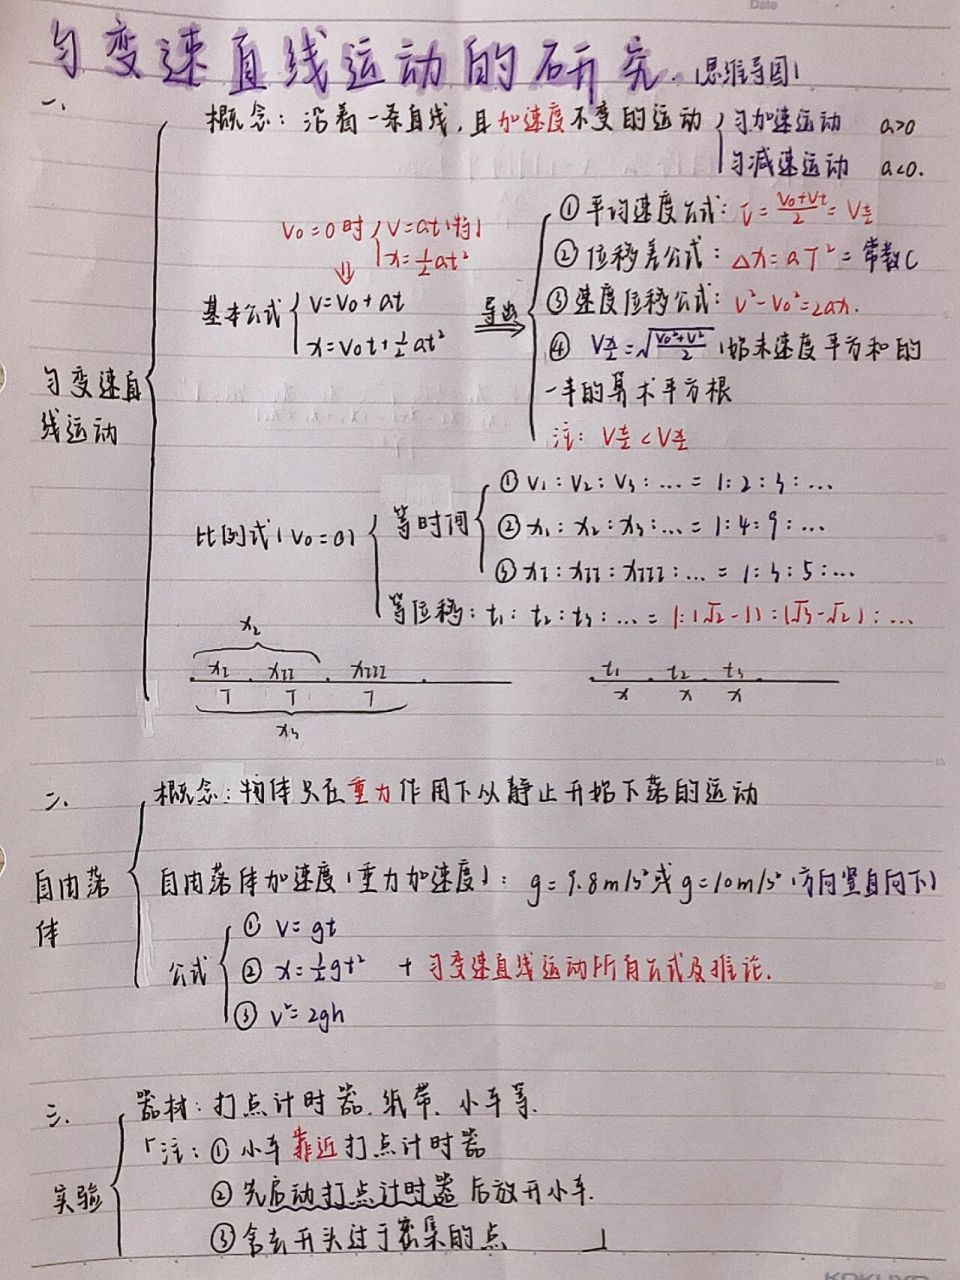 Date
匀变速直线运动的研究.(思维导图)
一、
概念：沿着一条直线，且加速度不变的运动 匀加速运动 a>0
匀减速运动 a<0.
V₀=0时 V=at(特)
x=½at²
基本公式 V=V₀+at
x=V₀t+½at²
导出
① 平均速度公式：v̄=(V₀+Vt)/2=V_{t/2}
② 位移差公式：△x=aT²=常数C
③ 速度位移公式：V²-V₀²=2ax.
④ V_{x/2}=√((V₀²+V²)/2) (始末速度平方和的
一半的算术平方根
注：V_{t/2}<V_{x/2}
匀变速直
线运动
比例式(V₀=0)
等时间
① V₁:V₂:V₃:…=1:2:3:…
② x₁:x₂:x₃:…=1:4:9:…
③ xⅠ:xⅡ:xⅢ:…=1:3:5:…
等位移：t₁:t₂:t₃:…=1:(√2-1):(√3-√2):…
x₂
xⅠ xⅡ xⅢ t₁ t₂ t₃
T T T x x x
x₃
二、
概念：物体只在重力作用下从静止开始下落的运动
自由落
体
自由落体加速度(重力加速度)：g=9.8m/s²或g=10m/s²(方向竖直向下)
公式
① V=gt
② x=½gt² +匀变速直线运动所有公式及推论.
③ V²=2gh
三、
器材：打点计时器、纸带、小车等.
「注：① 小车靠近打点计时器
实验
② 先启动打点计时器后放开小车.
③ 舍去开头过于密集的点 」
KOKUYO